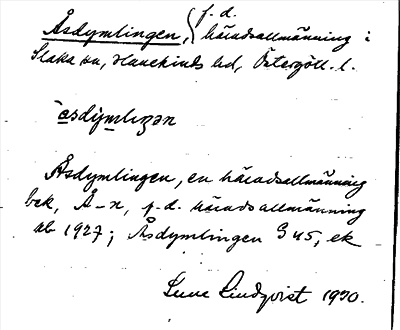 Åsdymlingen, f.d. häradsallmänning i
Slaka sn, Hanekinds hd, Östergötl. l.
åsdymlıŋən
Åsdymlingen, en häradsallmänning
bek, Å-n, f.d. häradsallmänning
ab 1927; Åsdymlingen G 45, ek
Sune Lindqvist 1930.